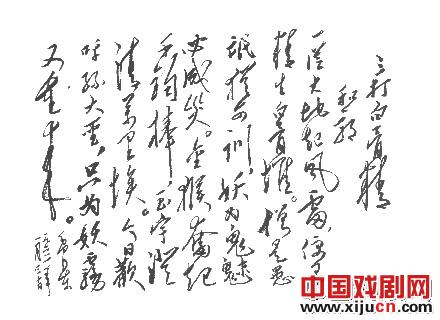 三打白骨精
和郭
一従大地起风雷，便有
精生白骨堆。僧是愚
氓猶可训，妖为鬼蜮
必成災。金猴奮起
千钧棒，玉宇澄
清萬里埃。今日歡
呼孫大聖，只为妖霧
又重来。
中国戏剧网
www.xijucn.com